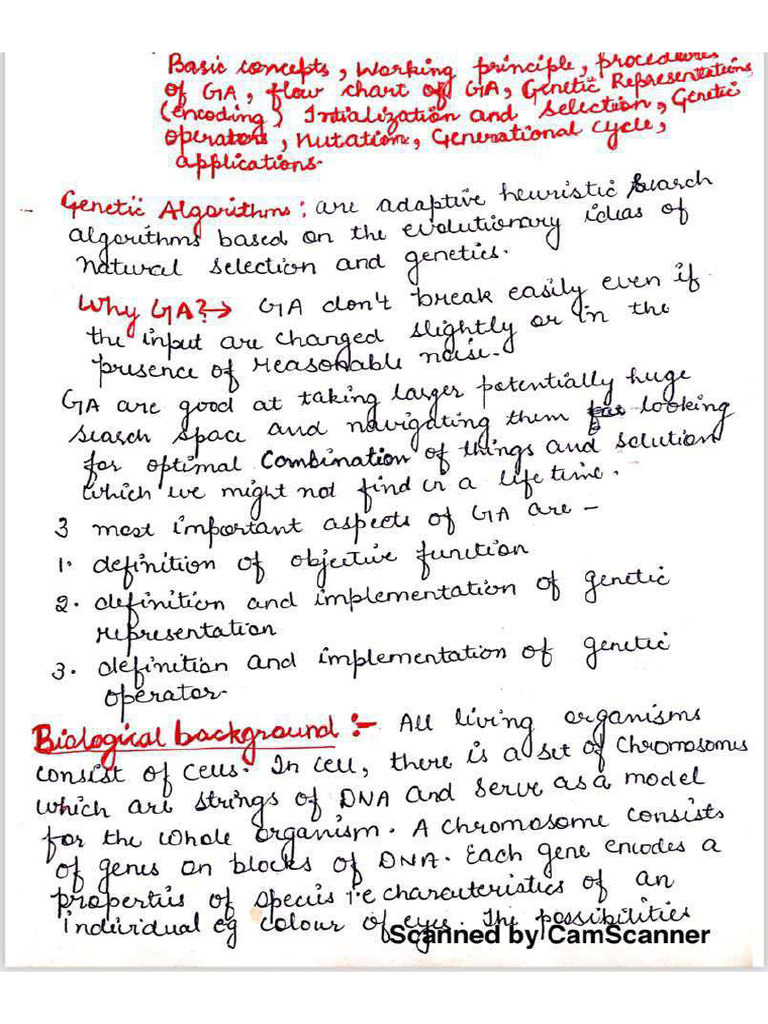 Basic concepts, Working principle, procedures
of GA, flow chart of GA, Genetic Representations,
(encoding) Initialization and selection, Genetic
operators, Mutation, Generational cycle,
applications.
Genetic Algorithms: are adaptive heuristic search
algorithms based on the evolutionary ideas of
natural selection and genetics.
Why GA? → GA don't break easily even if
the input are changed slightly or in the
presence of reasonable noise.
GA are good at taking larger potentially huge
search space and navigating them looking
for optimal combination of things and solution
which we might not find in a life time.
3 most important aspects of GA are -
1. definition of objective function
2. definition and implementation of genetic
representation
3. definition and implementation of genetic
operator.
Biological background :- All living organisms
consist of cells. In cell, there is a set of chromosomes
which are strings of DNA and serve as a model
for the whole organism. A chromosome consists
of genes on blocks of DNA. Each gene encodes a
properties of species i.e characteristics of an
individual eg colour of eyes. The possibilities
Scanned by CamScanner